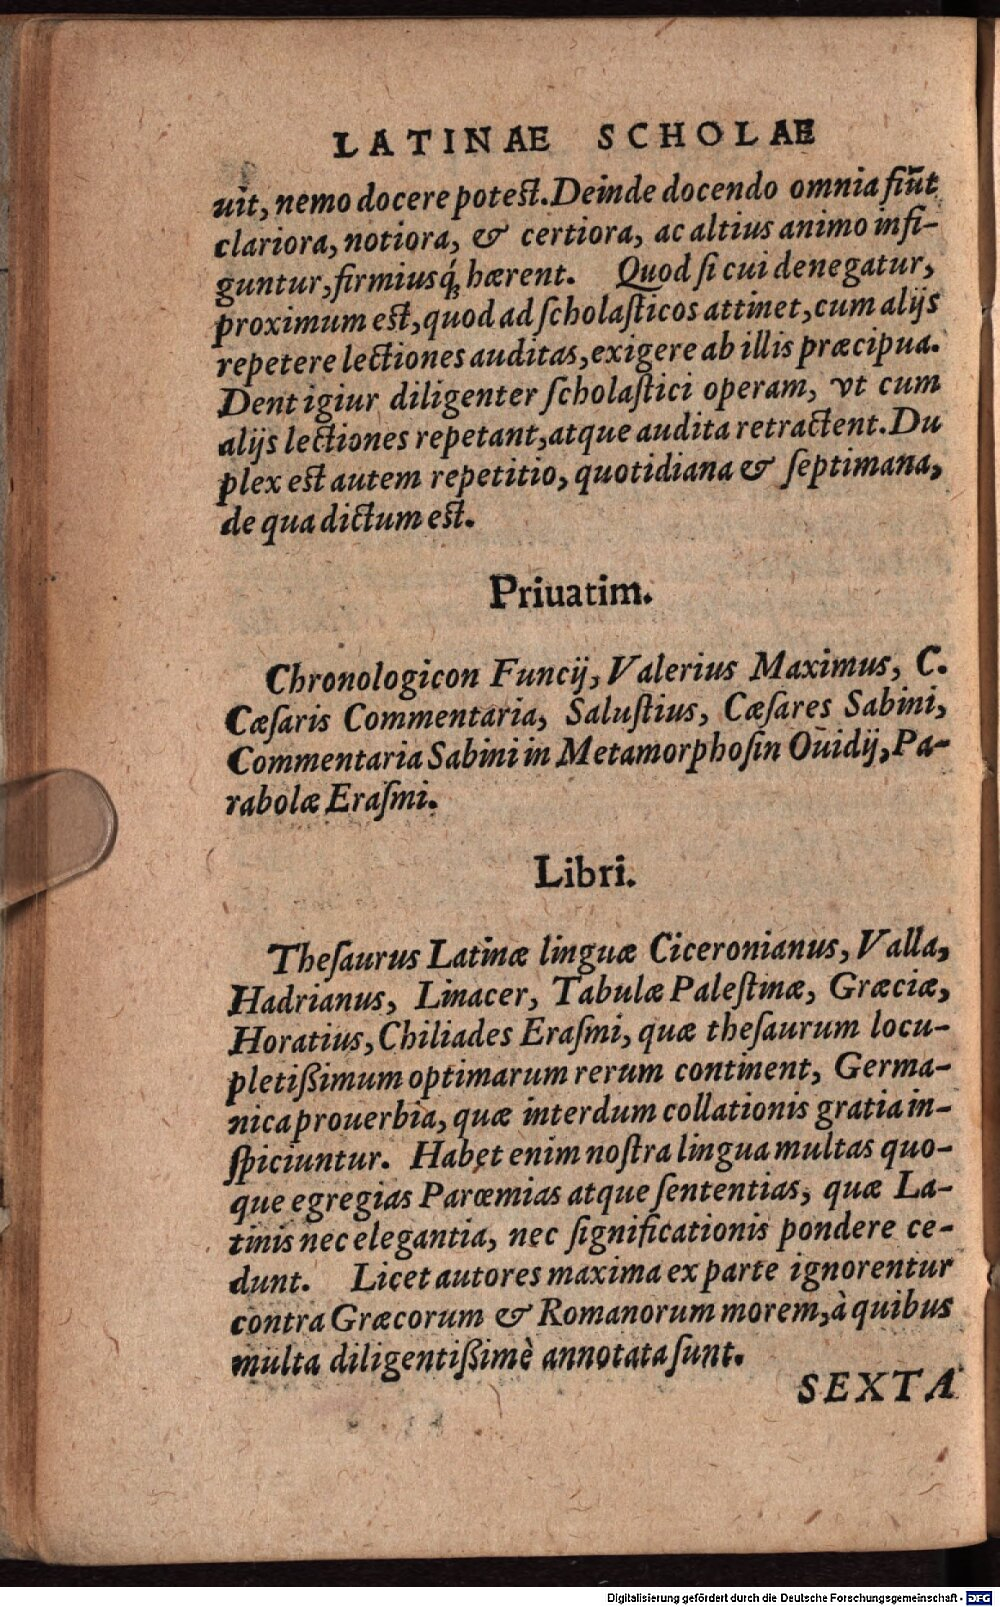 LATINAE SCHOLAE
uit, nemo docere potest. Deinde docendo omnia fiūt
clariora, notiora, & certiora, ac altius animo infi-
guntur, firmiusq́; hærent. Quod ſi cui denegatur,
proximum est, quod ad ſcholaſticos attinet, cum alijs
repetere lectiones auditas, exigere ab illis præcipua.
Dent igiur diligenter ſcholaſtici operam, vt cum
alijs lectiones repetant, atque audita retractent. Du
plex est autem repetitio, quotidiana & ſeptimana,
de qua dictum est.
Priuatim.
Chronologicon Funcij, Valerius Maximus, C.
Cæſaris Commentaria, Saluſtius, Cæſares Sabini,
Commentaria Sabini in Metamorphoſin Ouidij, Pa-
rabolæ Eraſmi.
Libri.
Theſaurus Latinæ linguæ Ciceronianus, Valla,
Hadrianus, Linacer, Tabulæ Paleſtinæ, Græciæ,
Horatius, Chiliades Eraſmi, quæ theſaurum locu-
pletißimum optimarum rerum continent, Germa-
nica prouerbia, quæ interdum collationis gratia in-
ſpiciuntur. Habet enim noſtra lingua multas quo-
que egregias Parœmias atque ſententias, quæ La-
tinis nec elegantia, nec ſignificationis pondere ce-
dunt. Licet autores maxima ex parte ignorentur
contra Græcorum & Romanorum morem, à quibus
multa diligentißimè annotata ſunt.
SEXTA
Digitalisierung gefördert durch die Deutsche Forschungsgemeinschaft - DFG